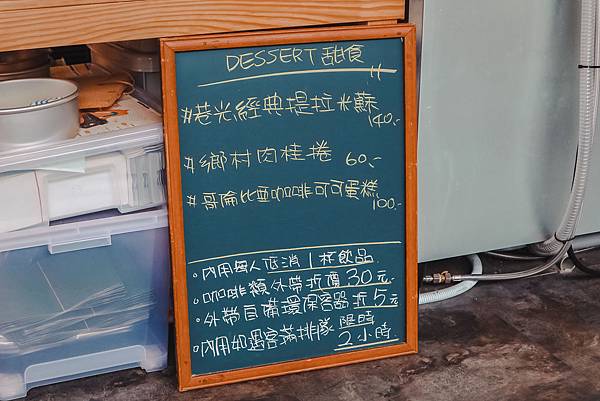 DESSERT 甜食
#巷光經典提拉米蘇
140.-
#鄉村肉桂捲 60.-
#哥倫比亞咖啡可可蛋糕
100.-
·內用每人低消1杯飲品
·咖啡類外帶折價30元
·外帶自備環保容器折5元
·內用如遇客滿排隊 限時
2小時